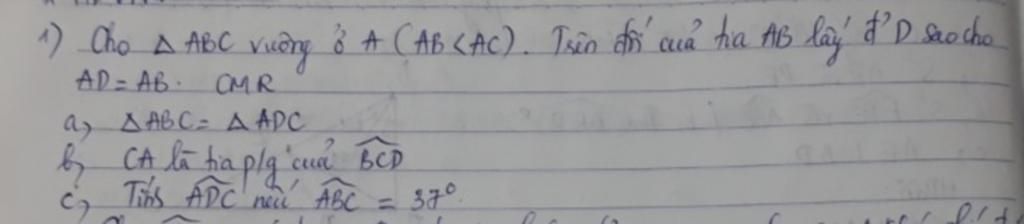 1) Cho △ABC vuông ở A (AB<AC). Trên đối của tia AB lấy đ' D sao cho
AD = AB. CMR
a, △ABC = △ADC
b, CA là tia p/g của \widehat{BCD}
c, Tính \widehat{ADC} nếu \widehat{ABC} = 37°